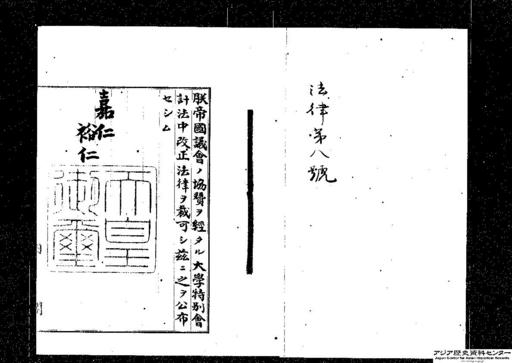 法律第八號
朕帝國議會ノ協贊ヲ經タル大學特別會
計法中改正法律ヲ裁可シ茲ニ之ヲ公布
セシム
嘉仁
裕仁
天皇
御璽
アジア歴史資料センター
Japan Center for Asian Historical Records